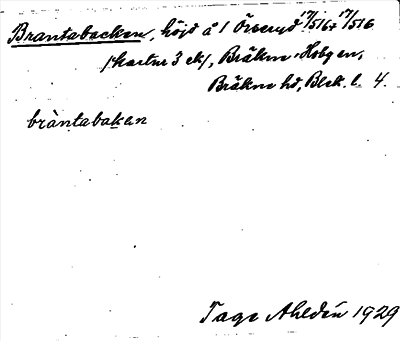 Brantabacken, höjd å 1 Översyd 17/516+17/516
(kartur 3 ek), Bräkne-Hoby sn,
Bräkne hd, Blek. l. 4.
bràntabakan
Tage Ahldén 1929